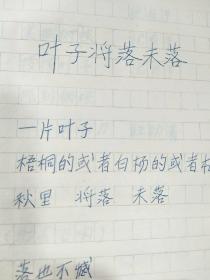 叶子将落未落
一片叶子
梧桐的或者白杨的或者
秋里 将落 未落
落也不憾